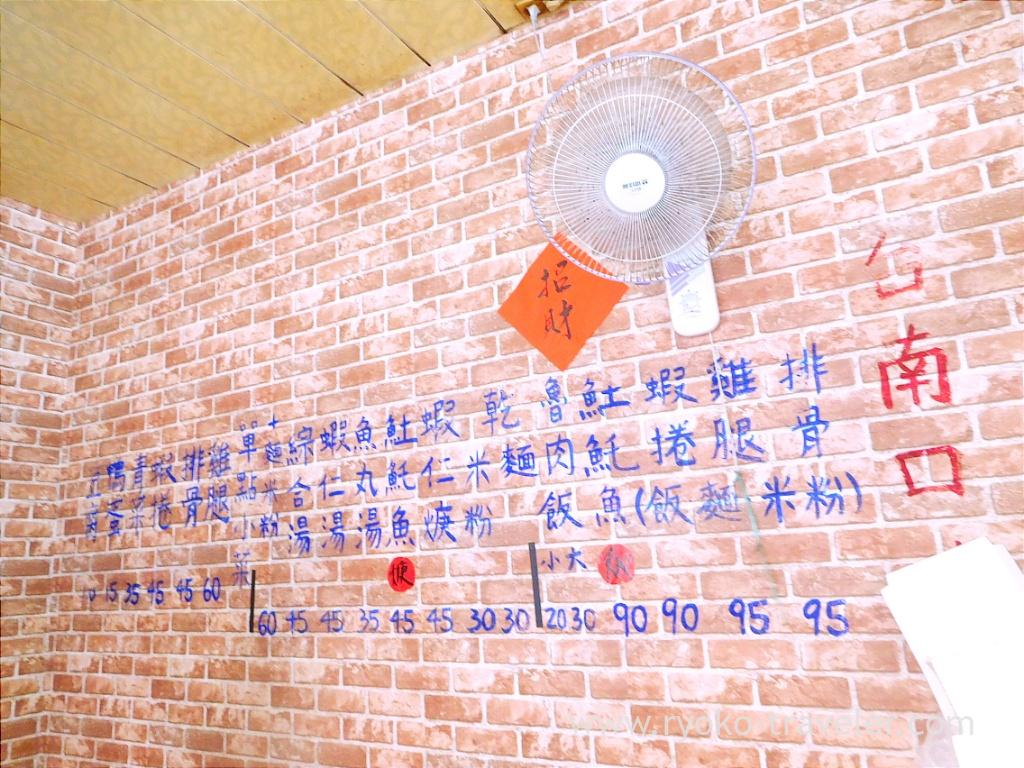 台南口
排骨
雞腿
蝦捲
𩵚魠魚
(飯麵米粉)
魯肉飯
小 大
乾
麵
米粉
蝦仁焿
𩵚魠魚
焿
魚丸湯
蝦仁湯
綜合湯
+麵米粉
單點小菜
雞腿
排骨
蝦捲
青菜
15 35 45 45 60
60 45 45 35 45 45 30 30
20 30 90 90 95 95
招財
www.ryoko-traveler.com